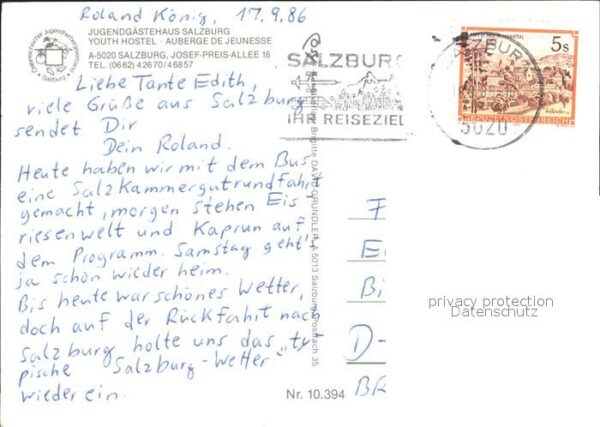 Roland König, 17.9.86
JUGENDGÄSTEHAUS SALZBURG
YOUTH HOSTEL · AUBERGE DE JEUNESSE
A-5020 SALZBURG, JOSEF-PREIS-ALLEE 18
TEL. (0662) 42670/46857
Liebe Tante Edith,
viele Grüße aus Salzburg
sendet Dir
Dein Roland.
Heute haben wir mit dem Bus
eine Salzkammergutrundfahrt
gemacht, morgen stehen Eis-
riesenwelt und Kaprun auf
dem Programm. Samstag geht's
ja schon wieder heim.
Bis heute war schönes Wetter,
doch auf der Rückfahrt nach
Salzburg holte uns das "ty-
pische Salzburg-Wetter"
wieder ein.
SALZBURG
IHR REISEZIEL
SALZBURG
5020
5s
REPUBLIK ÖSTERREICH
Brigitte DAVID GRÜNDLER, A-5013 Salzburg, Postfach 35
Nr. 10.394
F
E
Bi
D-
BR
privacy protection
Datenschutz